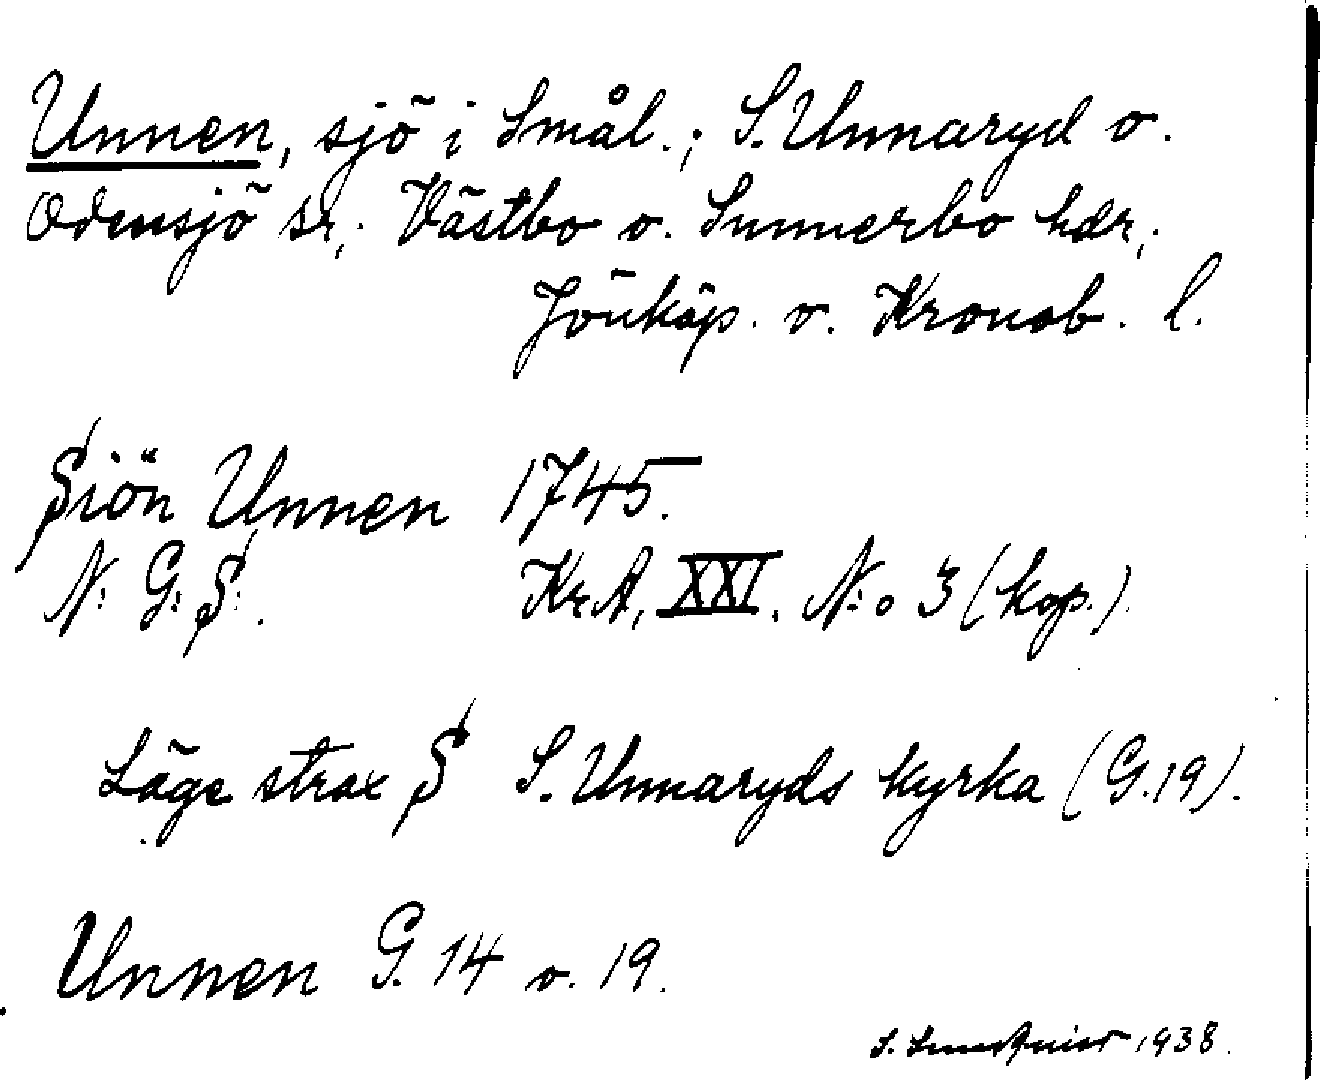 Unnen, sjö i Smål.; S. Unnaryd o.
Odensjö sr; Västbo o. Sunnerbo hdr;
Jönköp. o. Kronob. l.
Siön Unnen 1745.
N: G: S: KrA, XXI. N:o 3 (kop.).
Läge strax S S. Unnaryds kyrka (G. 19).
Unnen G. 14 o. 19.
S. 1938.